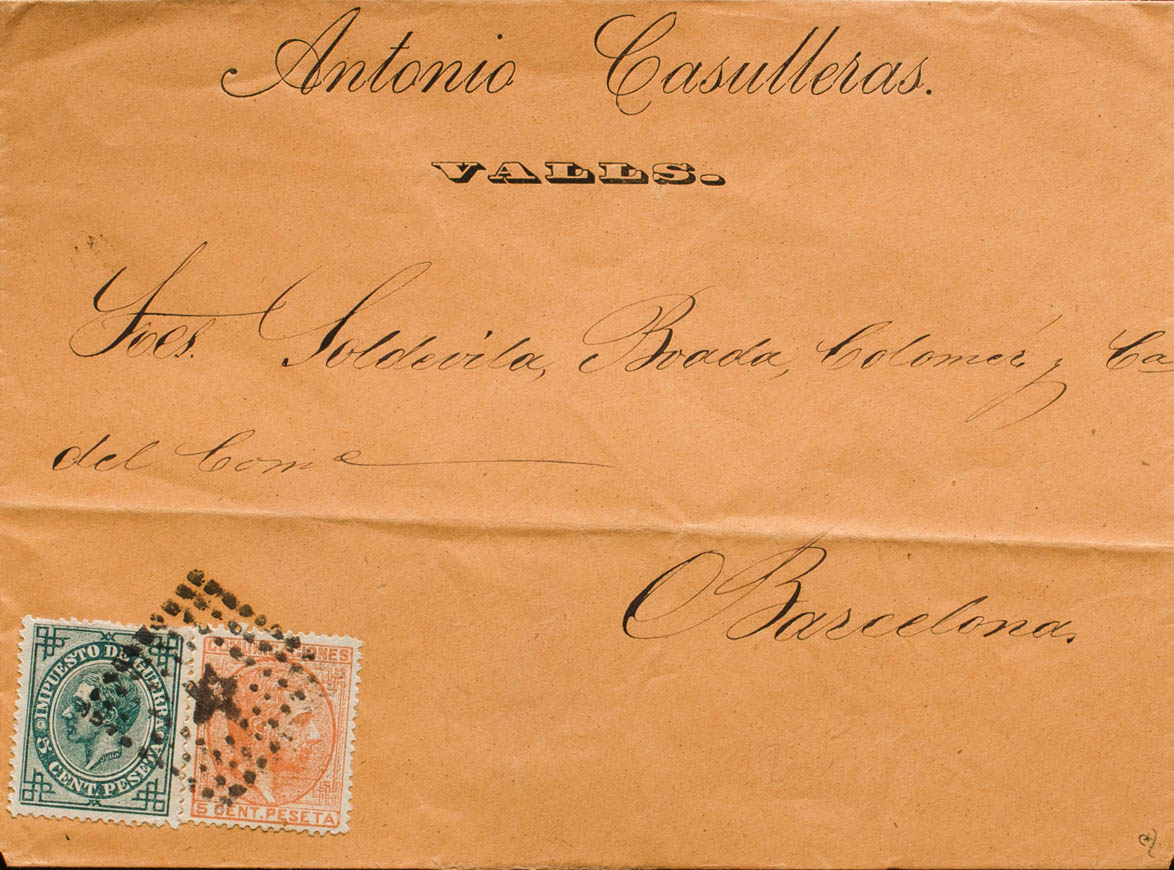 Antonio Casulleras.
VALLS.
Sres. Soldevila, Boada, Colomer y Ca
del Come
Barcelona.
IMPUESTO DE GUERRA
5 CENT. PESETA
COMUNICACIONES
5 CENT. PESETA